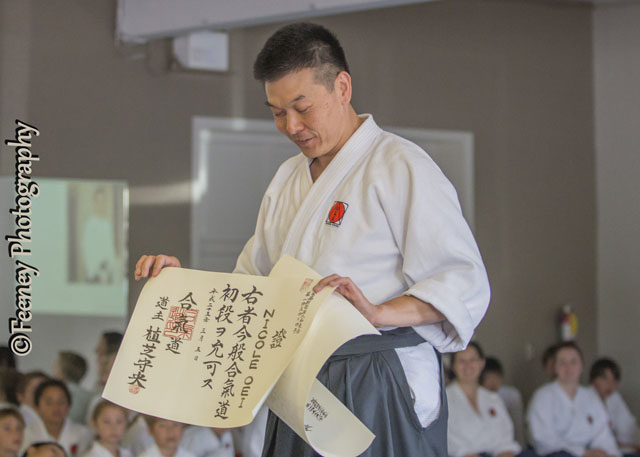 ©Feeney Photography
証
NICOLE OEI
右者今般合氣道
初段ヲ允可ス
平成二十五年三月五日
合氣道
道主 植芝守央